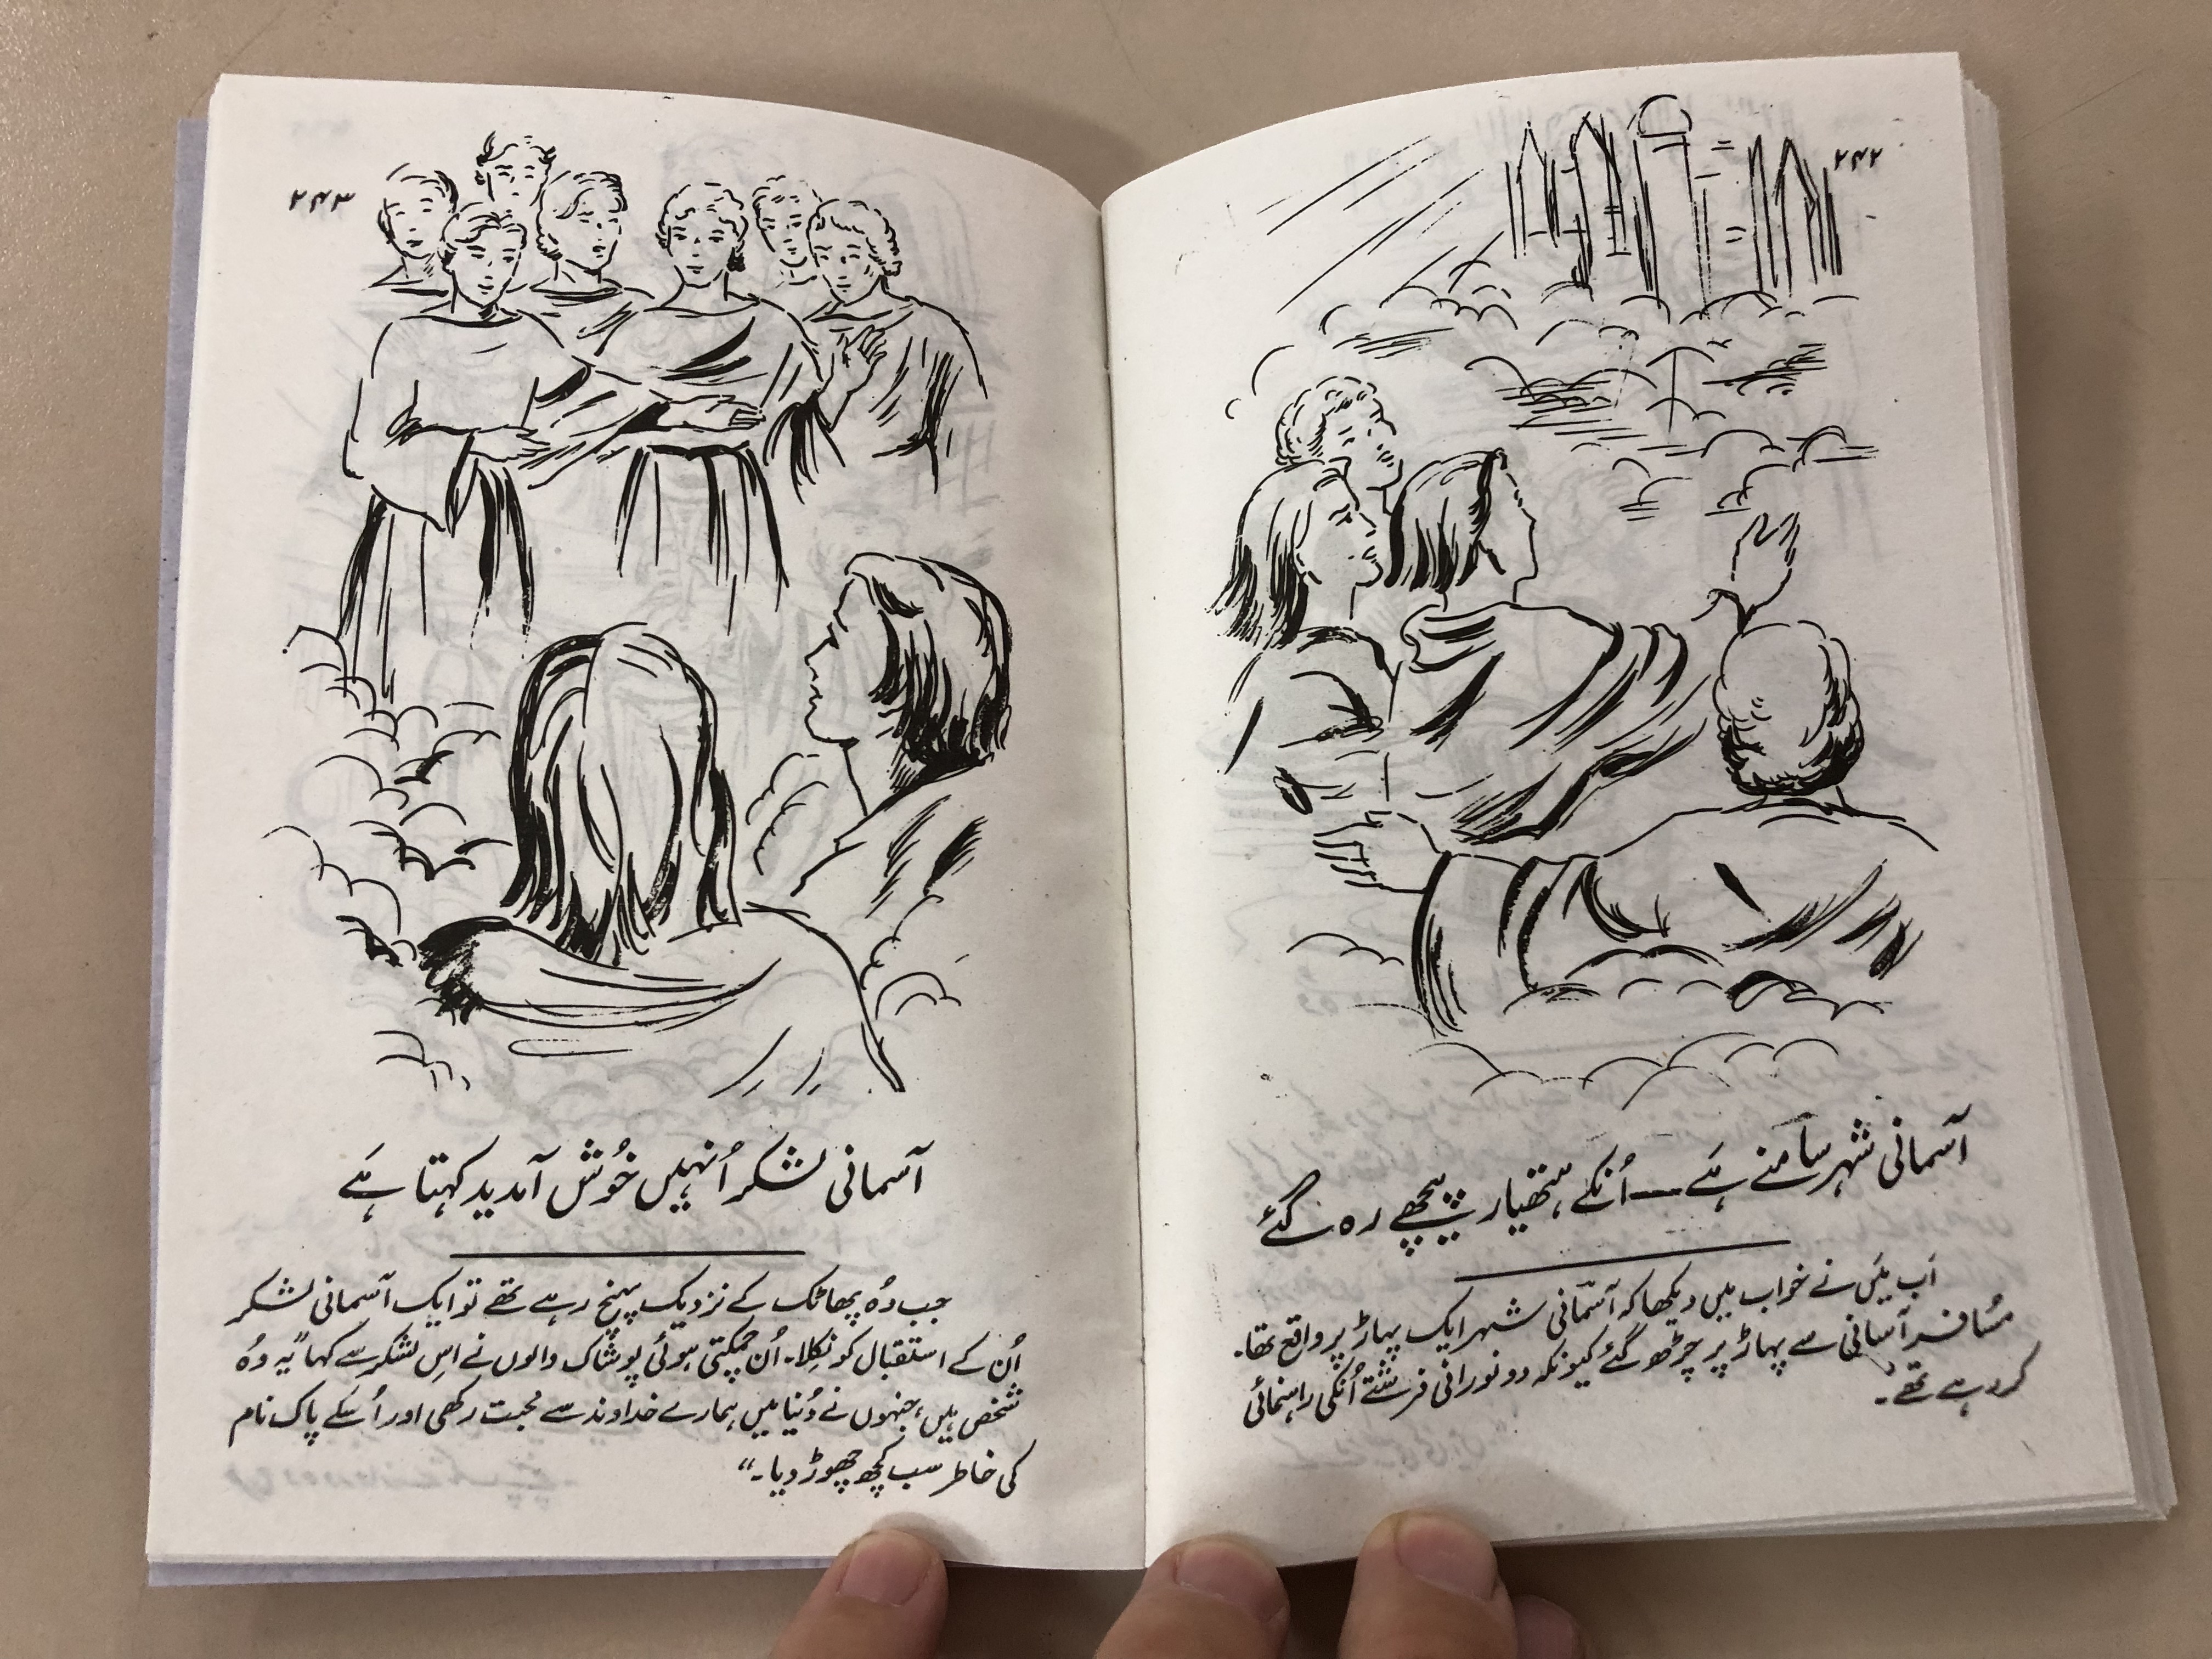 ۲۴۲
آسمانی شہر سامنے ہَے — اُنکے ہتھیار پیچھے رہ گئے
اَب مَیں نے خواب میں دیکھا کہ آسمانی شہر ایک پہاڑ پر واقع تھا۔
مُسافر آسانی سے پہاڑ پر چڑھ گئے کیونکہ دو نورانی فرشتے اُنکی راہنمائی
کر رہے تھے۔
۲۴۳
آسمانی لشکر اُنہیں خُوش آمدید کہتا ہَے
جب وُہ پھاٹک کے نزدیک پہنچ رہے تھے تو ایک آسمانی لشکر
اُن کے استقبال کو نکِلا۔ اُن چمکتی ہوئی پوشاک والوں نے اِس لشکر سے کہا ”یہ وُہ
شخص ہیں، جنہوں نے دُنیا میں ہمارے خداوند سے محبت رکھی اور اُسکے پاک نام
کی خاطر سب کچھ چھوڑ دیا۔“